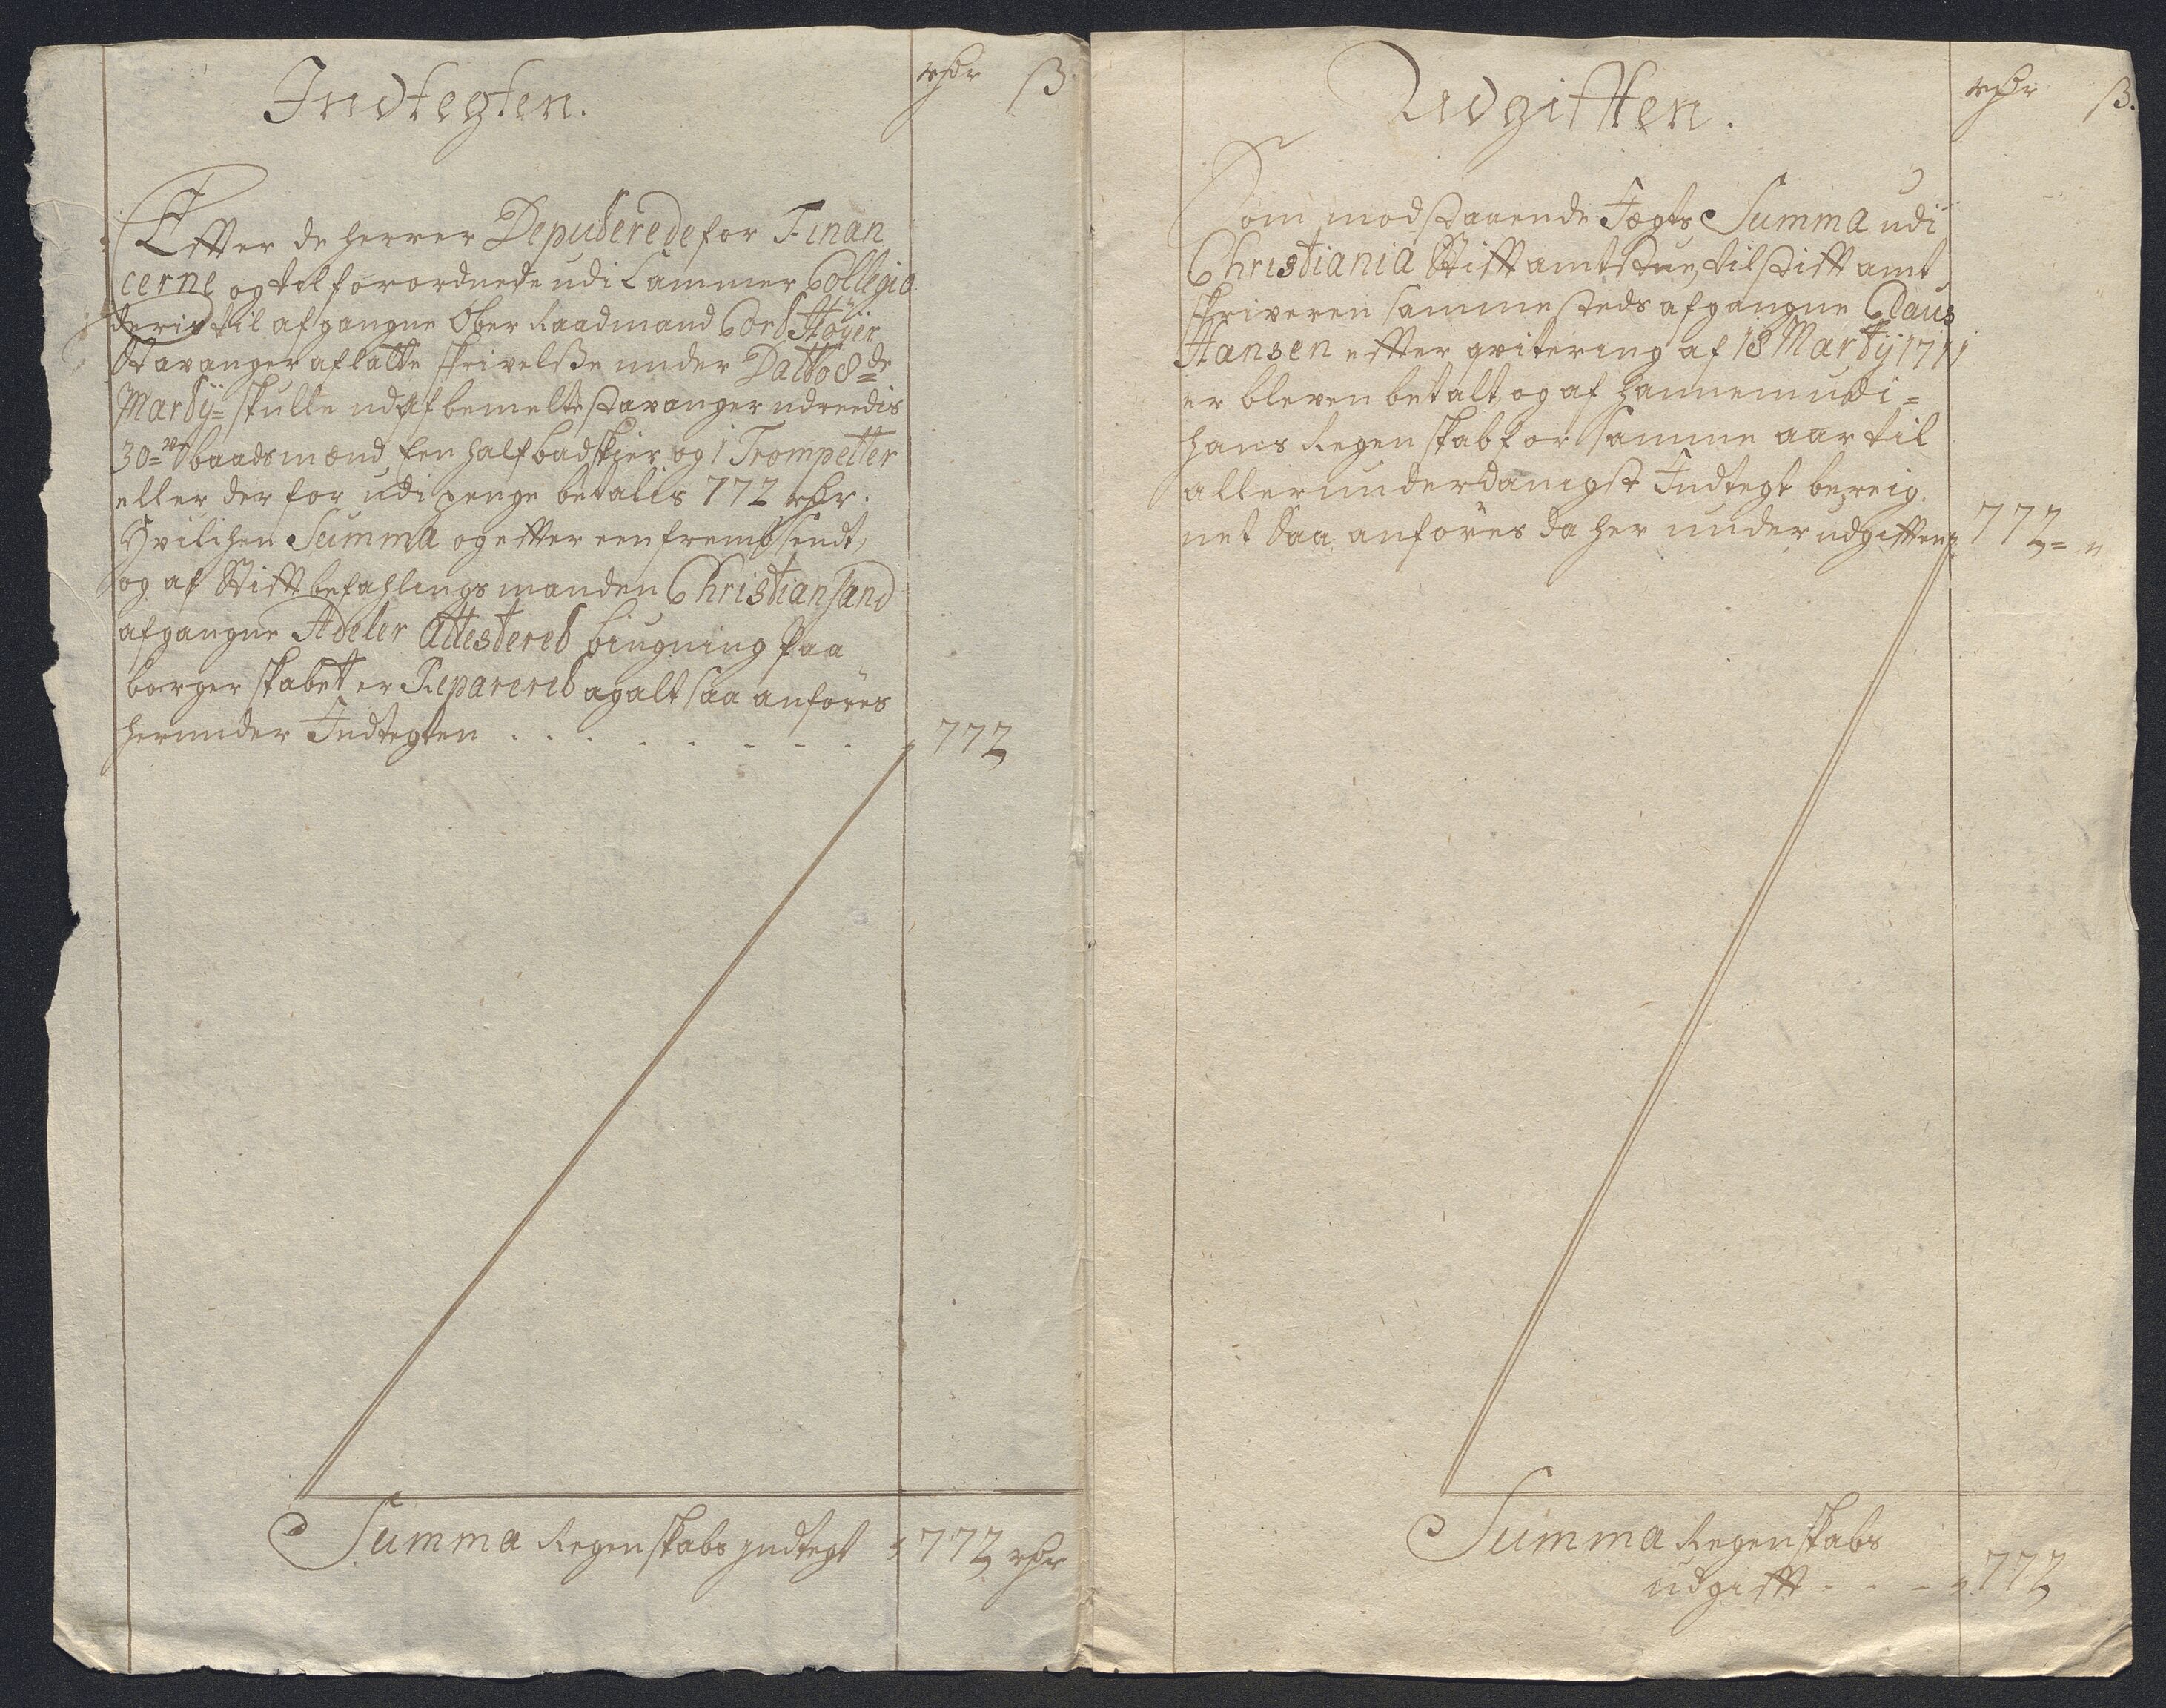 Indtegten.
rhdr ß
Efter de herrer Deputerede for Finan
cerne og til forordnede udi Cammer Collegio
deris til afgangne Ober Raadmand Cort Höyer
Stavanger aflatte skrivelße under Datto 8de
Martÿ= skulle ud af bemelte Stavanger udreedis
30= baadsmænd Een halfbadskier og 1 Trompetter
eller der for udi penge betalis 772 rhdr.
Hvilchen Summa og efter een frembsendt,
og af Stiftbefahlingsmanden Christiansand
afgangne Adeler Attestered ligning paa
borgerskabet er Reparered og alt saa anföres
herunder Indtegten . . . . . . . . . 772
Summa Regenskabs Indtegt 772 rhdr
Udgiften.
rhdr ß.
Som modstaaende Jegts Summa udi
Christiania Stiftamtstue, til Stiftamt
skriveren sammesteds afgangne Claus
Hansen efter qvitering af 18 Martÿ 1711
er bleven betalt, og af hannem udi=
hans Regenskab for Samme aar til
allerunderdanigst Indtegt bereig
net Saa anföres da her under udgiften 772= "
Summa Regenskabs
udgift - - - 772